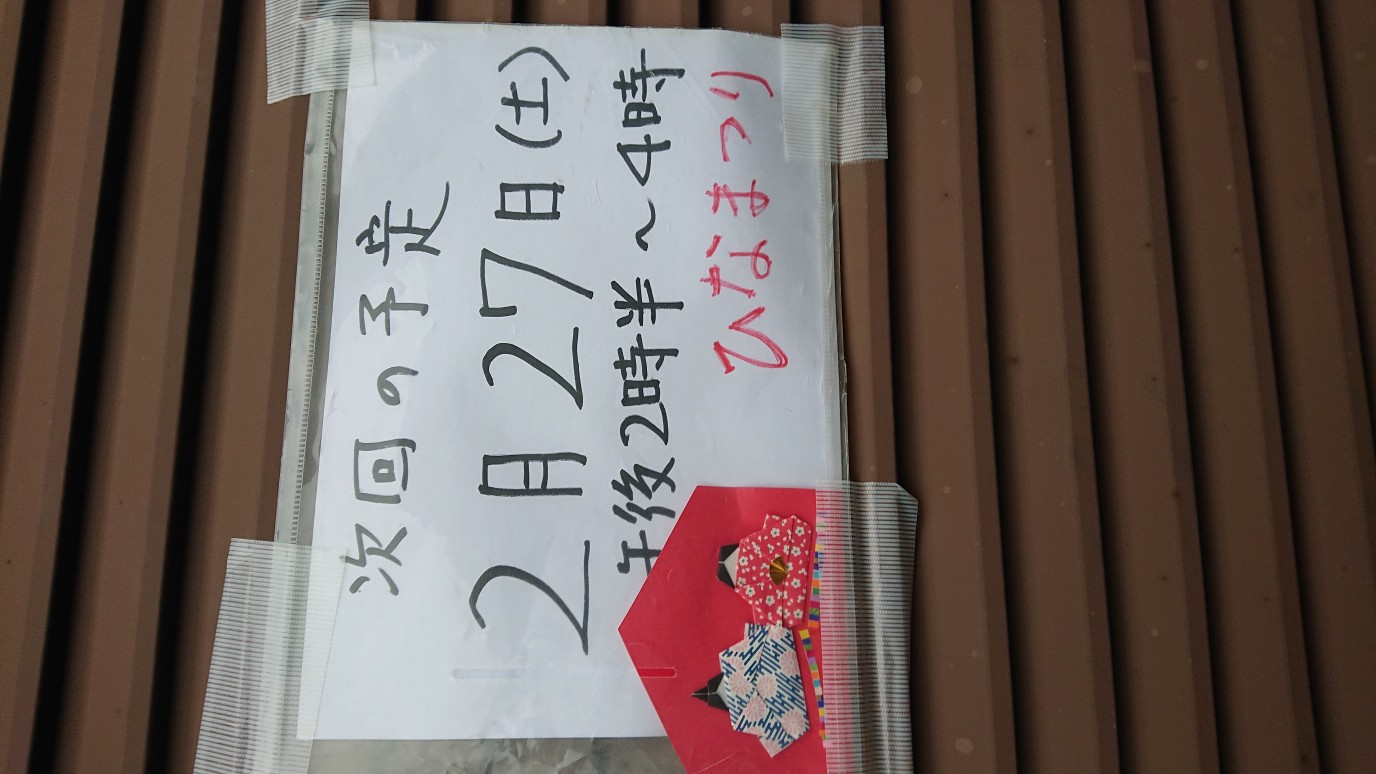 次回の予定
2月27日(土)
午後2時半～4時
ひなまつり